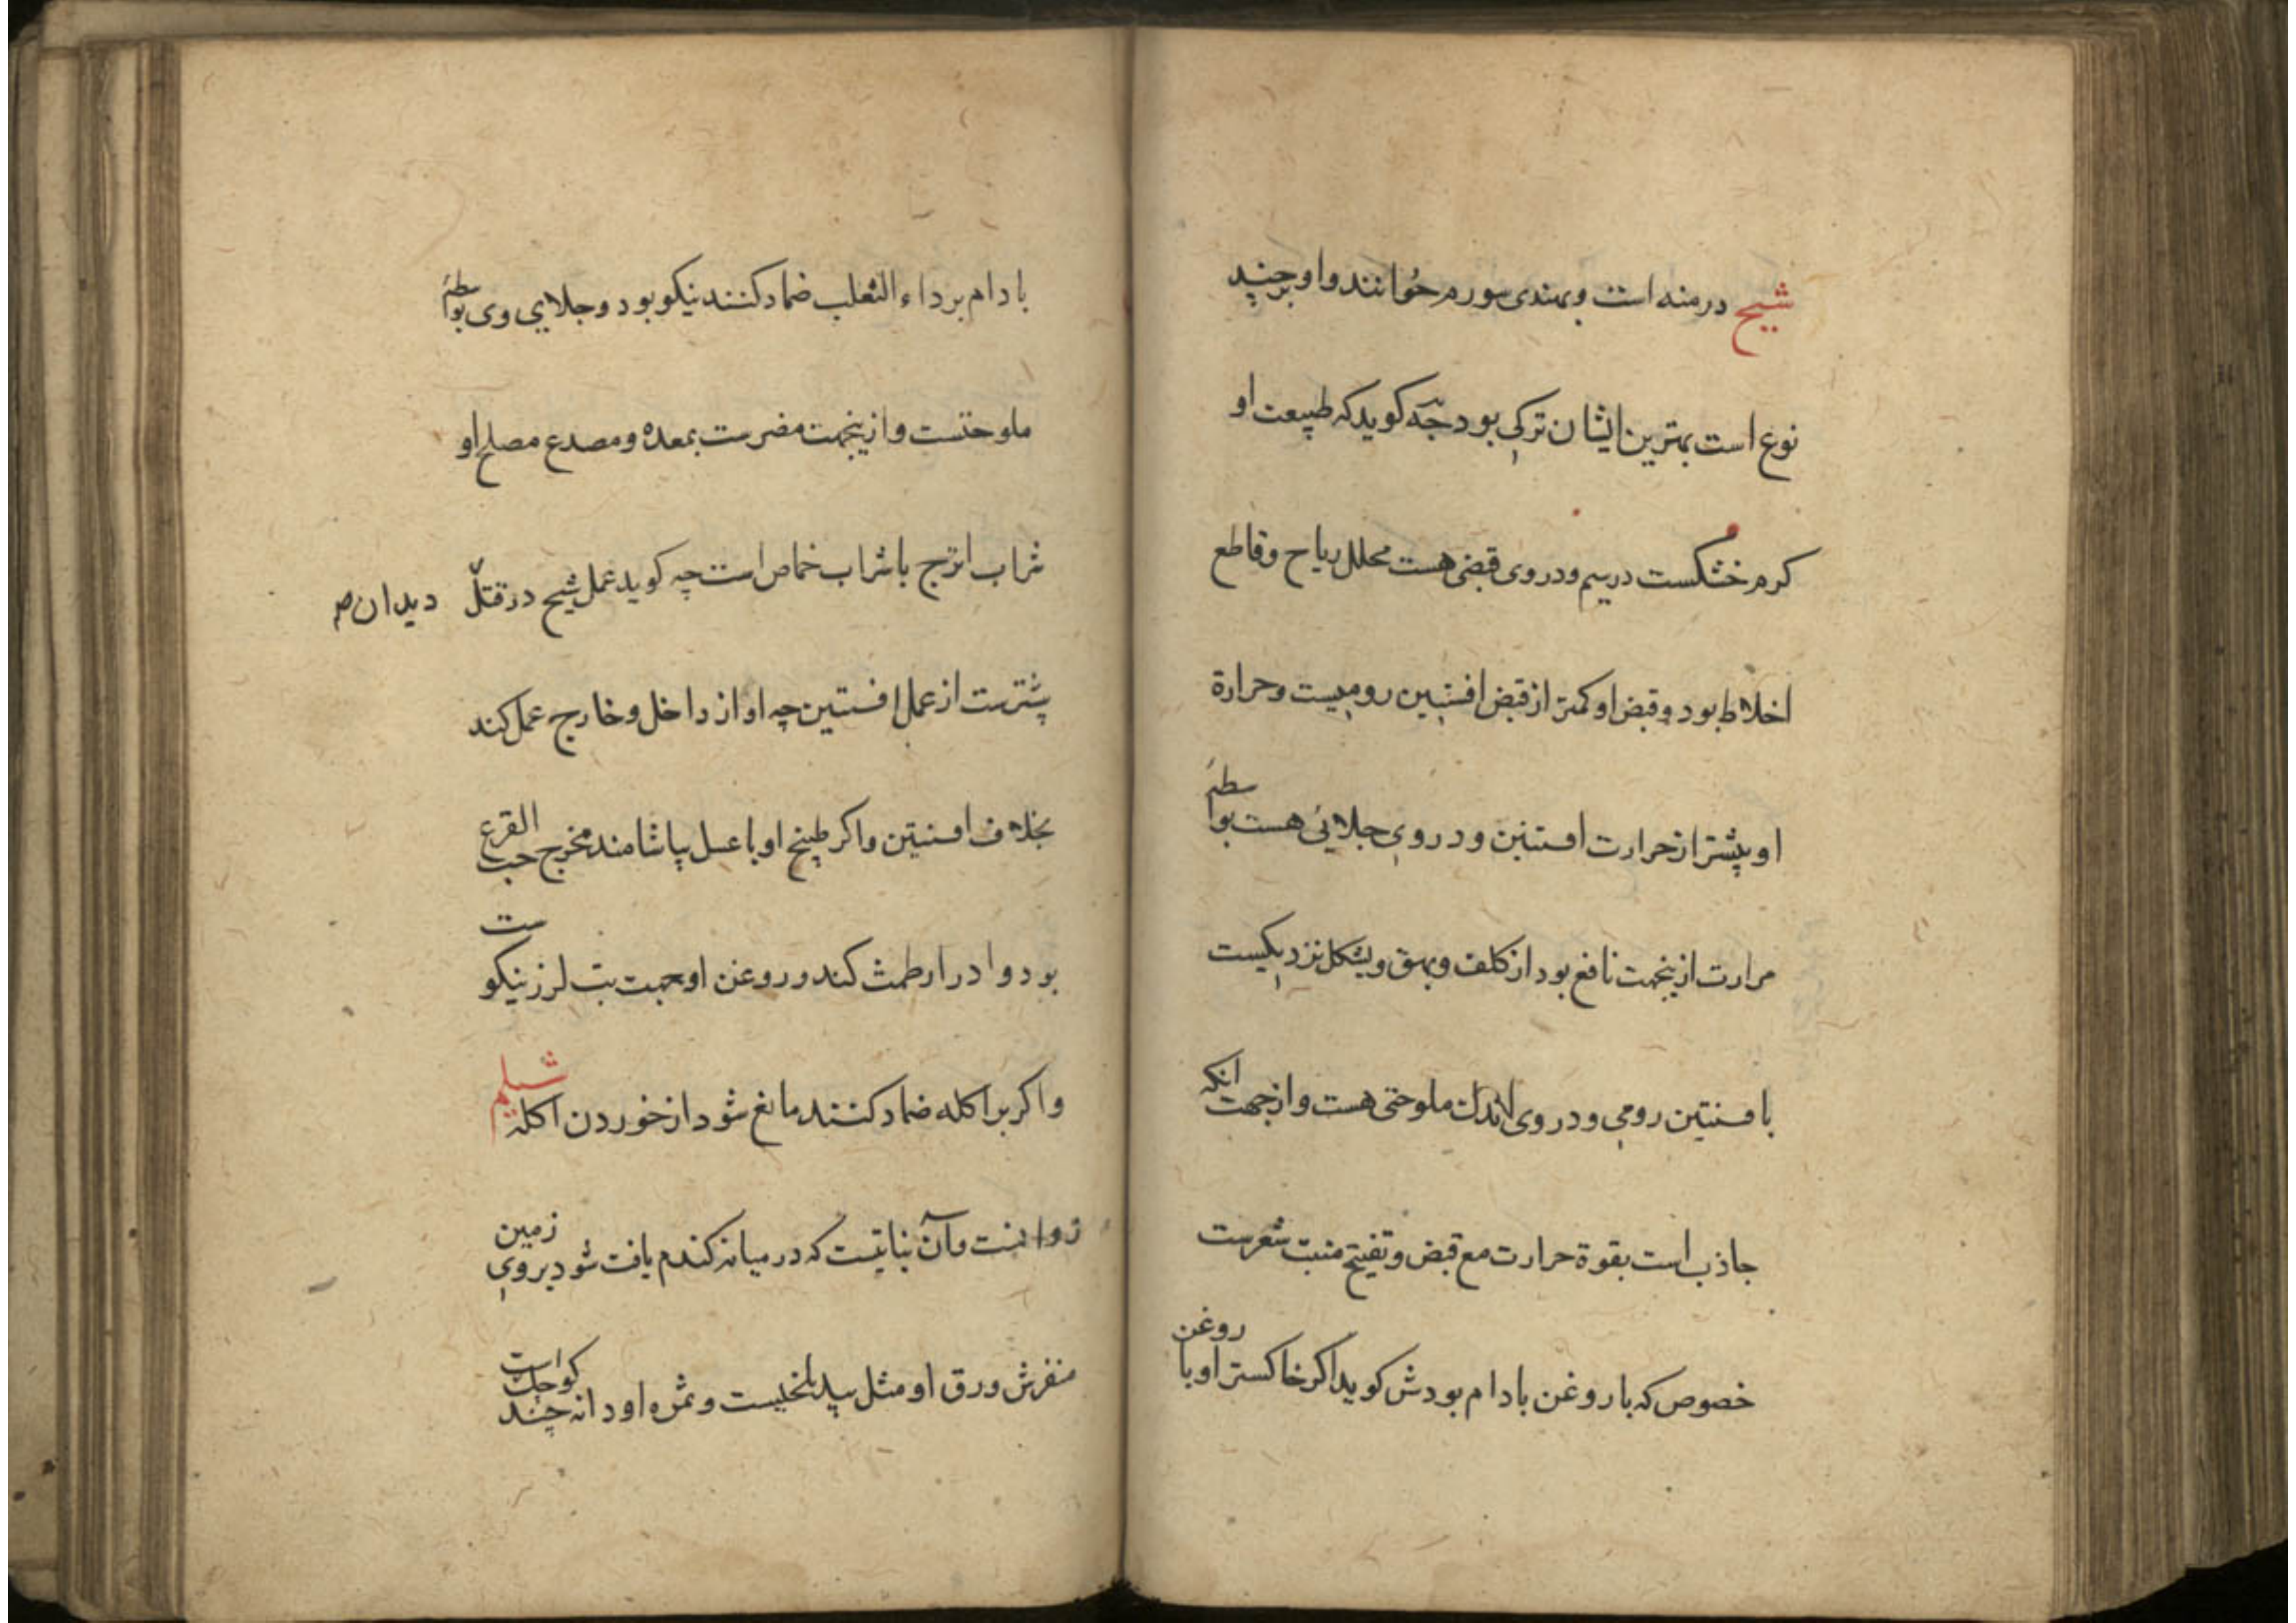 شیح درمنه است و بهندی سورم خوانند و او بر چند
نوع است بهترین ایشان ترکی بود جَه کوید که طبیعت او
کرم خشکست در سیم و در وی قبضی هست محلل ریاح و قاطع
اخلاط بود و قبض او کمتر از قبض افسنتین رومیست و حرارة
او بیشتر از حرارت افسنتین و در وی جلائی هست بواسطه
مرارت ازینجهت نافع بود از کلف و بهق و بشکل نزدیکیست
با فسنتین رومی و در وی اندک ملوحتی هست و از جهت انکه
جاذب است بقوة حرارت مع قبض و تفتیح منبت شعرست
خصوص که با روغن بادام بود ش کوید اکر خاکستر او با روغن
بادام بر داء الثعلب ضماد کنند نیکو بود و جلایی وی بواسطه
ملوحتست و ازینجهت مضرست بمعده و مصدع مصلح او
شراب اترج با شراب حماض است چه کوید عمل شیح در قتل دیدان
بیشترست از عمل افسنتین چه او از داخل و خارج عمل کند
بخلاف افسنتین و اکر طبیخ او با عسل بیاشامند مخرج حب القرع
بود و ادرار طمث کند و روغن او جهت تب لرز نیکوست
و اکر بر اکله ضماد کنند مانع شود از خوردن اکله شیلم
زوانست و آن نباتیست که در میانه کندم یافت شود بر روی زمین
منفرش ورق او مثل بید بلخیست و ثمره او دانه چند کوچک است